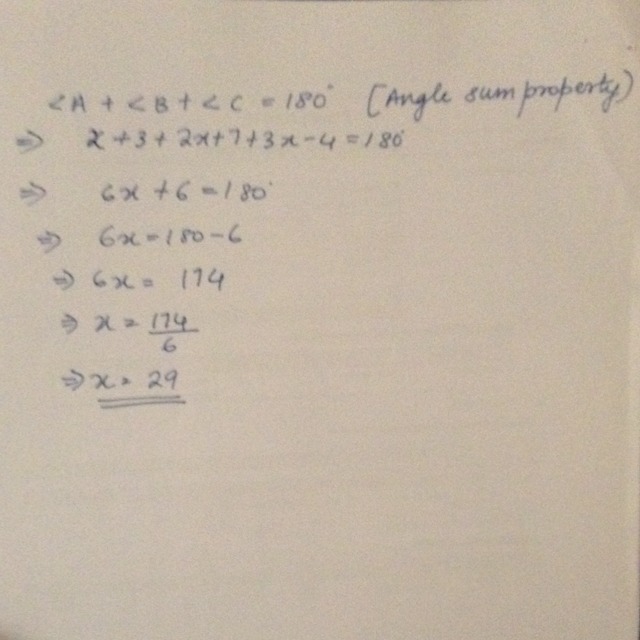 <A + <B + <C = 180° [Angle sum property)
⇒ x + 3 + 2x + 7 + 3x - 4 = 180°
⇒ 6x + 6 = 180°
⇒ 6x = 180 - 6
⇒ 6x = 174
⇒ x = 174/6
⇒ x = 29